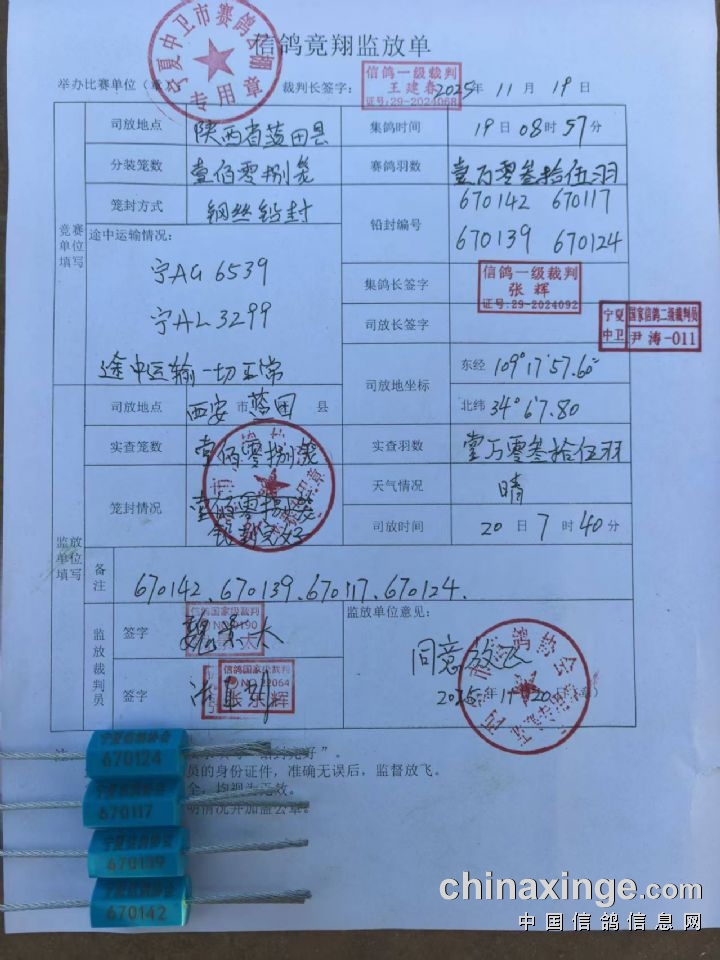 信鸽竞翔监放单
宁夏中卫市赛鸽
专用章
举办比赛单位（章）
裁判长签字：
信鸽一级裁判
王建春
证号:29-2024068
2025年 11月 19日
司放地点 陕西省蓝田县
集鸽时间 19日 08时 57分
分装笼数 壹佰零捌笼
赛鸽羽数 壹万零叁拾伍羽
笼封方式 钢丝铅封
铅封编号 670142 670117
670139 670124
竞赛单位填写
途中运输情况：
宁AG 6539
宁AL 3299
途中运输一切正常
集鸽长签字
信鸽一级裁判
张辉
证号:29-2024092
司放长签字
宁夏中卫
国家信鸽二级裁判员
尹涛-011
司放地坐标
东经 109°17′57.60″
北纬 34°6′7.80
司放地点 西安市 蓝田县
实查笼数 壹佰零捌笼
实查羽数 壹万零叁拾伍羽
笼封情况
铅封完好
天气情况 晴
司放时间 20日 7时 40分
监放单位填写
备注 670142、670139、670117、670124.
监放裁判员
签字
信鸽国家级裁判
签字
信鸽国家级裁判
NO 22064
张东辉
监放单位意见：
同意放飞
2025年11月20日
市信鸽协会
铅封完好”。
员的身份证件，准确无误后，监督放飞。
全，均视为无效。
明情况并加盖公章。
宁夏信鸽协会
670124
宁夏信鸽协会
670117
宁夏信鸽协会
670139
宁夏信鸽协会
670142
chinaxinge.com
中国信鸽信息网